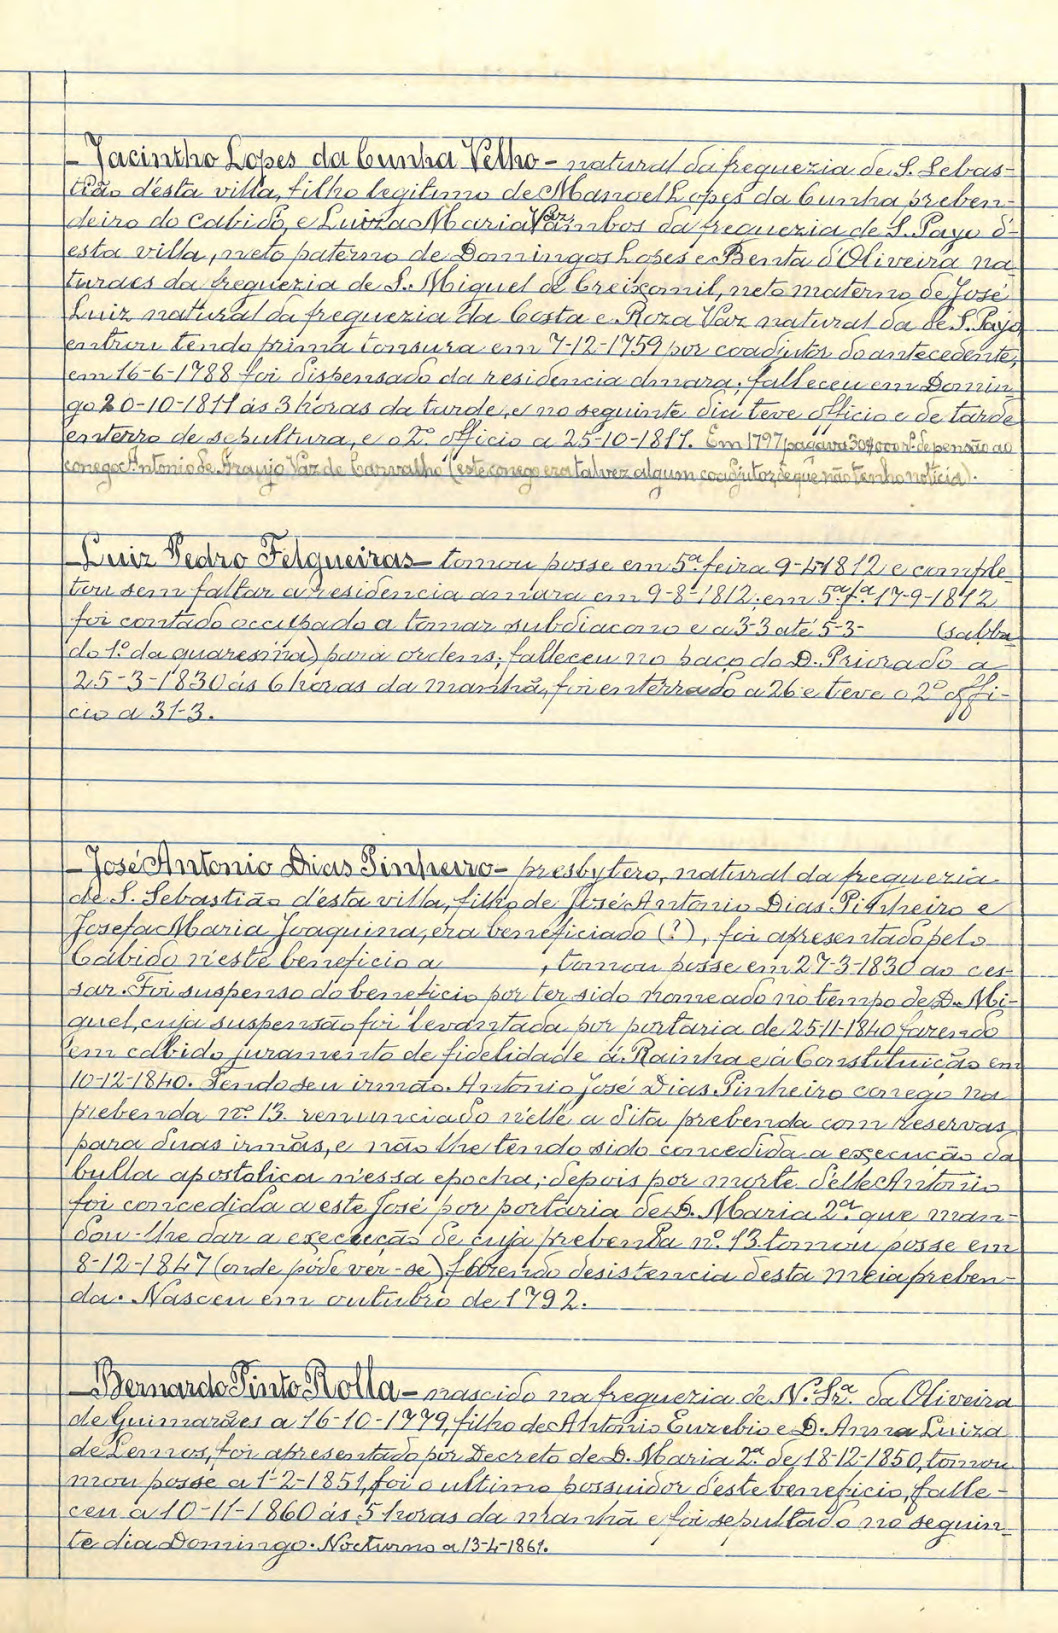 - Jacintho Lopes da Cunha Velho - natural da freguezia de S. Sebas-
tião d'ésta villa, filho legitimo de Manoel Lopes da Cunha preben-
deiro do Cabido, e Luiza Maria Vaz, ambos da freguezia de S. Payo d'-
esta villa, neto paterno de Domingos Lopes e Benta d'Oliveira na-
turaes da freguezia de S. Miguel de Creixomil, neto materno de José
Luiz natural da freguezia da Costa e Roza Vaz natural da de S. Payo,
entrou tendo prima tonsura em 7-12-1759 por coadjutor do antecedente,
em 16-6-1788 foi dispensado da residencia amara; falleceu em Domin-
go 20-10-1811 ás 3 horas da tarde, e no seguinte dia teve officio e de tarde
enterro de sepultura, e o 2.º officio a 25-10-1811. Em 1797 pagava 30$000 rs. de pensão ao
conego Antonio de Araujo Vaz de Carvalho (este conego era talvez algum coadjutor, de que não tenho noticia).
- Luiz Pedro Felgueiras - tomou posse em 5.ª feira 9-4-1812 e comple-
tou sem faltar a residencia amara em 9-8-1812; em 5.ª f.ª 17-9-1812
foi contado occulpado a tomar subdiacono e a 3-3 até 5-3- (sabba-
do 1.º da quaresma) para ordens; falleceu no paço do D. Priorado a
25-3-1830 ás 6 horas da manhã, foi enterrado a 26 e teve o 2.º offi-
cio a 31-3.
- José Antonio Dias Pinheiro - presbytero, natural da freguezia
de S. Sebastião d'ésta villa, filho de José Antonio Dias Pinheiro e
Josefa Maria Joaquina, era beneficiado (?), foi apresentado pelo
Cabido n'este beneficio a , tomou posse em 27-3-1830 ao ces-
sar. Foi suspenso do beneficio por ter sido nomeado no tempo de D. Mi-
guel, cuja suspensão foi levantada por portaria de 25-11-1840 fazendo
em cabido juramento de fidelidade á Rainha e á Constituição em
10-12-1840. Tendo seu irmão Antonio José Dias Pinheiro conego na
prebenda n.º 13 renunciado n'elle a dita prebenda com reservas
para duas irmãs, e não lhe tendo sido concedida a execução da
bulla apostolica n'essa epocha; depois por morte d'elle Antonio
foi concedida a este José por portaria de D. Maria 2.ª que man-
dou-lhe dar a execução de cuja prebenda n.º 13 tomou posse em
8-12-1847 (onde póde ver-se) fazendo desistencia desta meia preben-
da. Nasceu em outubro de 1792.
- Bernardo Pinto Rolla - nascido na freguezia de N.ª Sr.ª da Oliveira
de Guimarães a 16-10-1779, filho de Antonio Euzebio e D. Anna Luiza
de Lemos, foi apresentado por Decreto de D. Maria 2.ª de 18-12-1850, tomou
mou posse a 1-2-1851, foi o ultimo possuidor d'este beneficio, falle-
ceu a 10-11-1860 ás 5 horas da manhã e foi sepultado no seguin-
te dia Domingo. Nocturno a 13-4-1861.